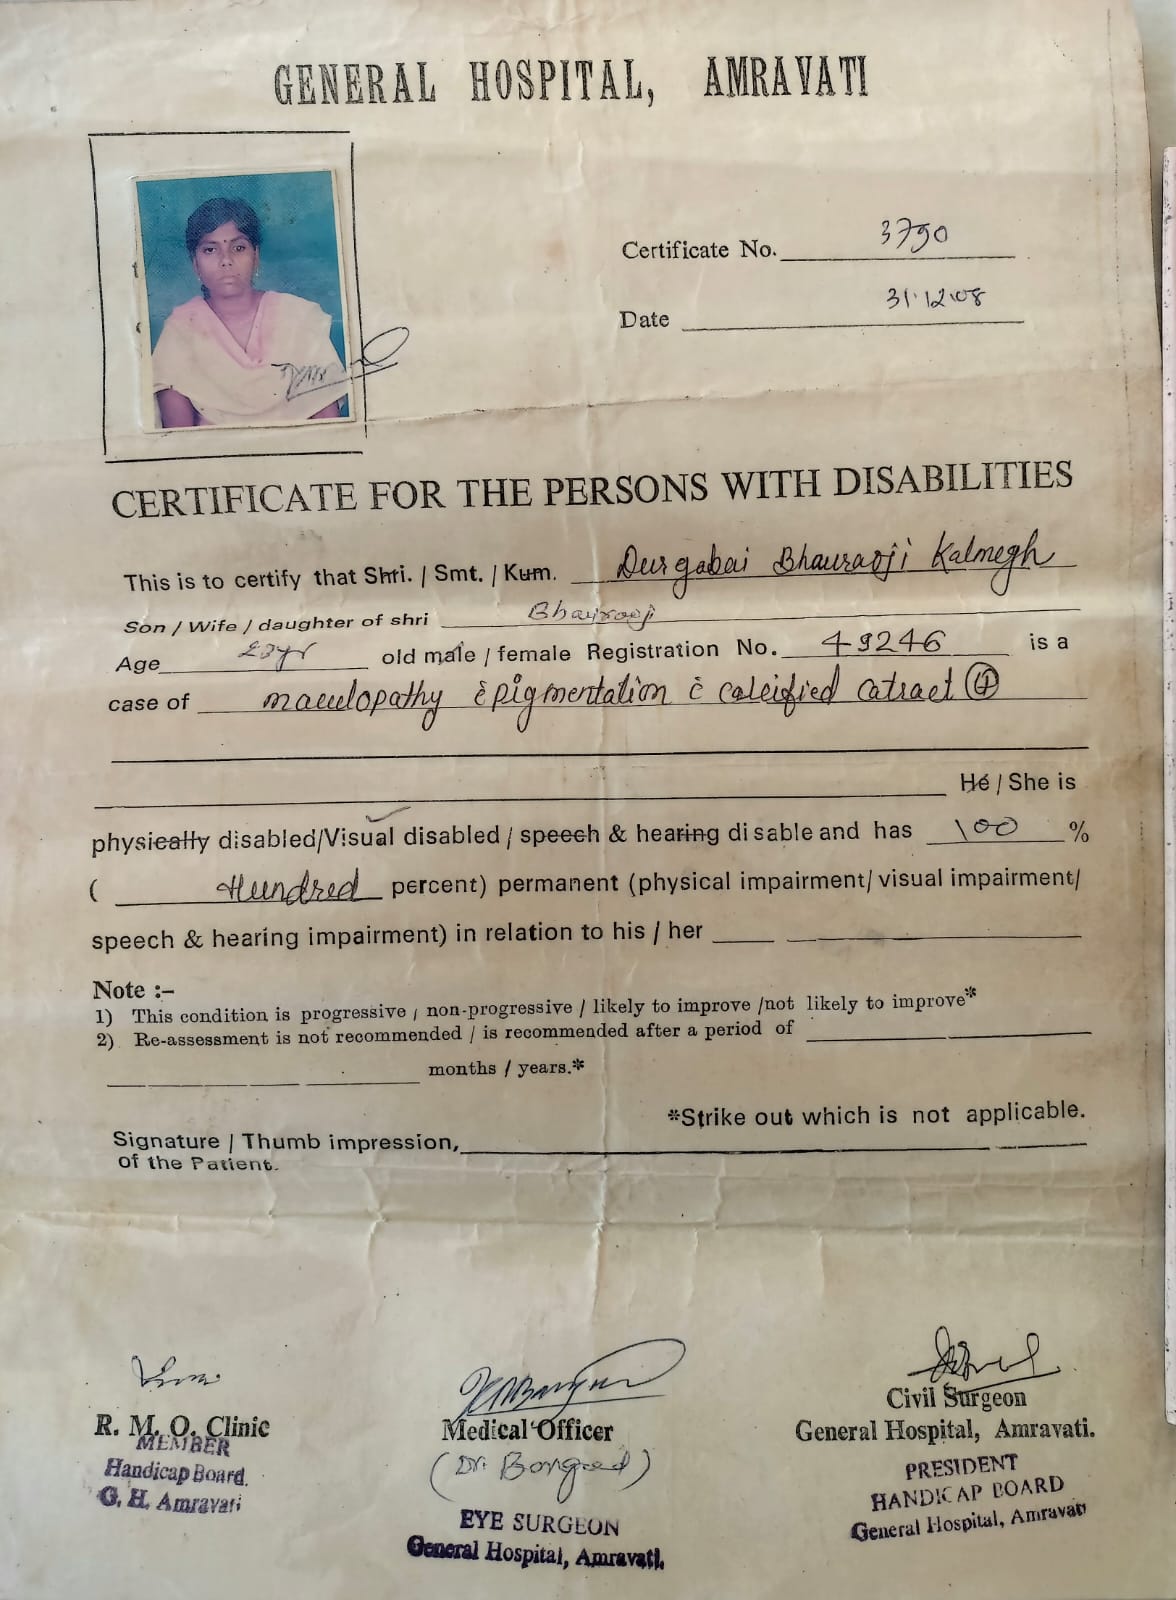 GENERAL HOSPITAL, AMRAVATI
Certificate No. 3790
Date 31.12.08
CERTIFICATE FOR THE PERSONS WITH DISABILITIES
This is to certify that Shri. / Smt. / Kum. Durgabai Bhauraoji Kalmegh
Son / Wife / daughter of shri Bhauraoji
Age yr old male / female Registration No. 49246 is a
case of maculopathy c̄ pigmentation c̄ calcified catract
He / She is
physically disabled/Visual disabled / speech & hearing disable and has 100 %
( Hundred percent) permanent (physical impairment/ visual impairment/
speech & hearing impairment) in relation to his / her
Note :-
1) This condition is progressive / non-progressive / likely to improve /not likely to improve*
2) Re-assessment is not recommended / is recommended after a period of
months / years.*
*Strike out which is not applicable.
Signature / Thumb impression,
of the Patient.
R. M. O. Clinic
MEMBER
Handicap Board.
G. H. Amravati
Medical Officer
(Dr.
EYE SURGEON
General Hospital, Amravati.
Civil Surgeon
General Hospital, Amravati.
PRESIDENT
HANDICAP BOARD
General Hospital, Amravati